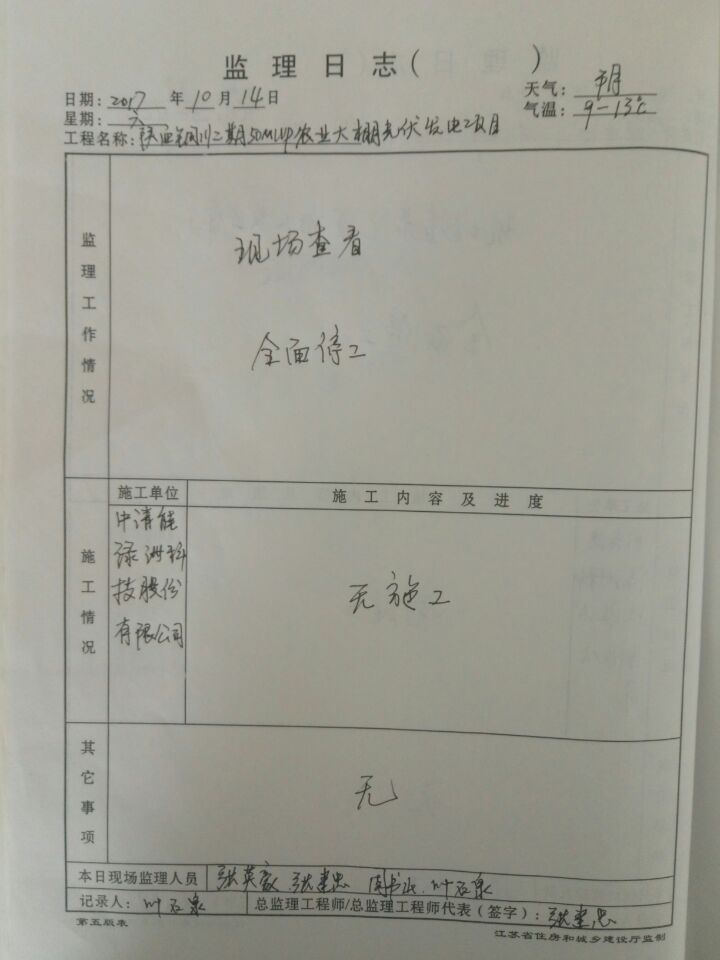 监理日志(        )
日期: 2017 年 10 月 14 日
天气:
星期: 六
气温: 9-13℃
工程名称: 陕西铜川二期50MWP农业大棚光伏发电项目
监理工作情况
现场查看
全面停工
施工情况
施工单位
施工内容及进度
中清能
绿洲科
技股份
有限公司
无施工
其它事项
无
本日现场监理人员 张英豪 张建忠 叶石泉
记录人: 叶石泉
总监理工程师/总监理工程师代表(签字): 张建忠
第五版表
江苏省住房和城乡建设厅监制